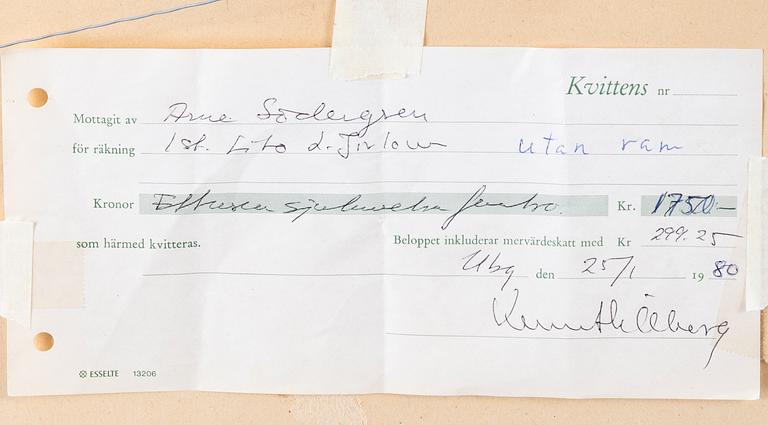 Kvittens nr
Mottagit av Arne Södergren
för räkning 1 st. Lito d. utan ram
Kronor Ettusen sjuhundra femtio. Kr. 1750:-
som härmed kvitteras. Beloppet inkluderar mervärdeskatt med Kr 299.25
Ubg den 25/1 1980
Kenneth Åberg
ESSELTE 13206